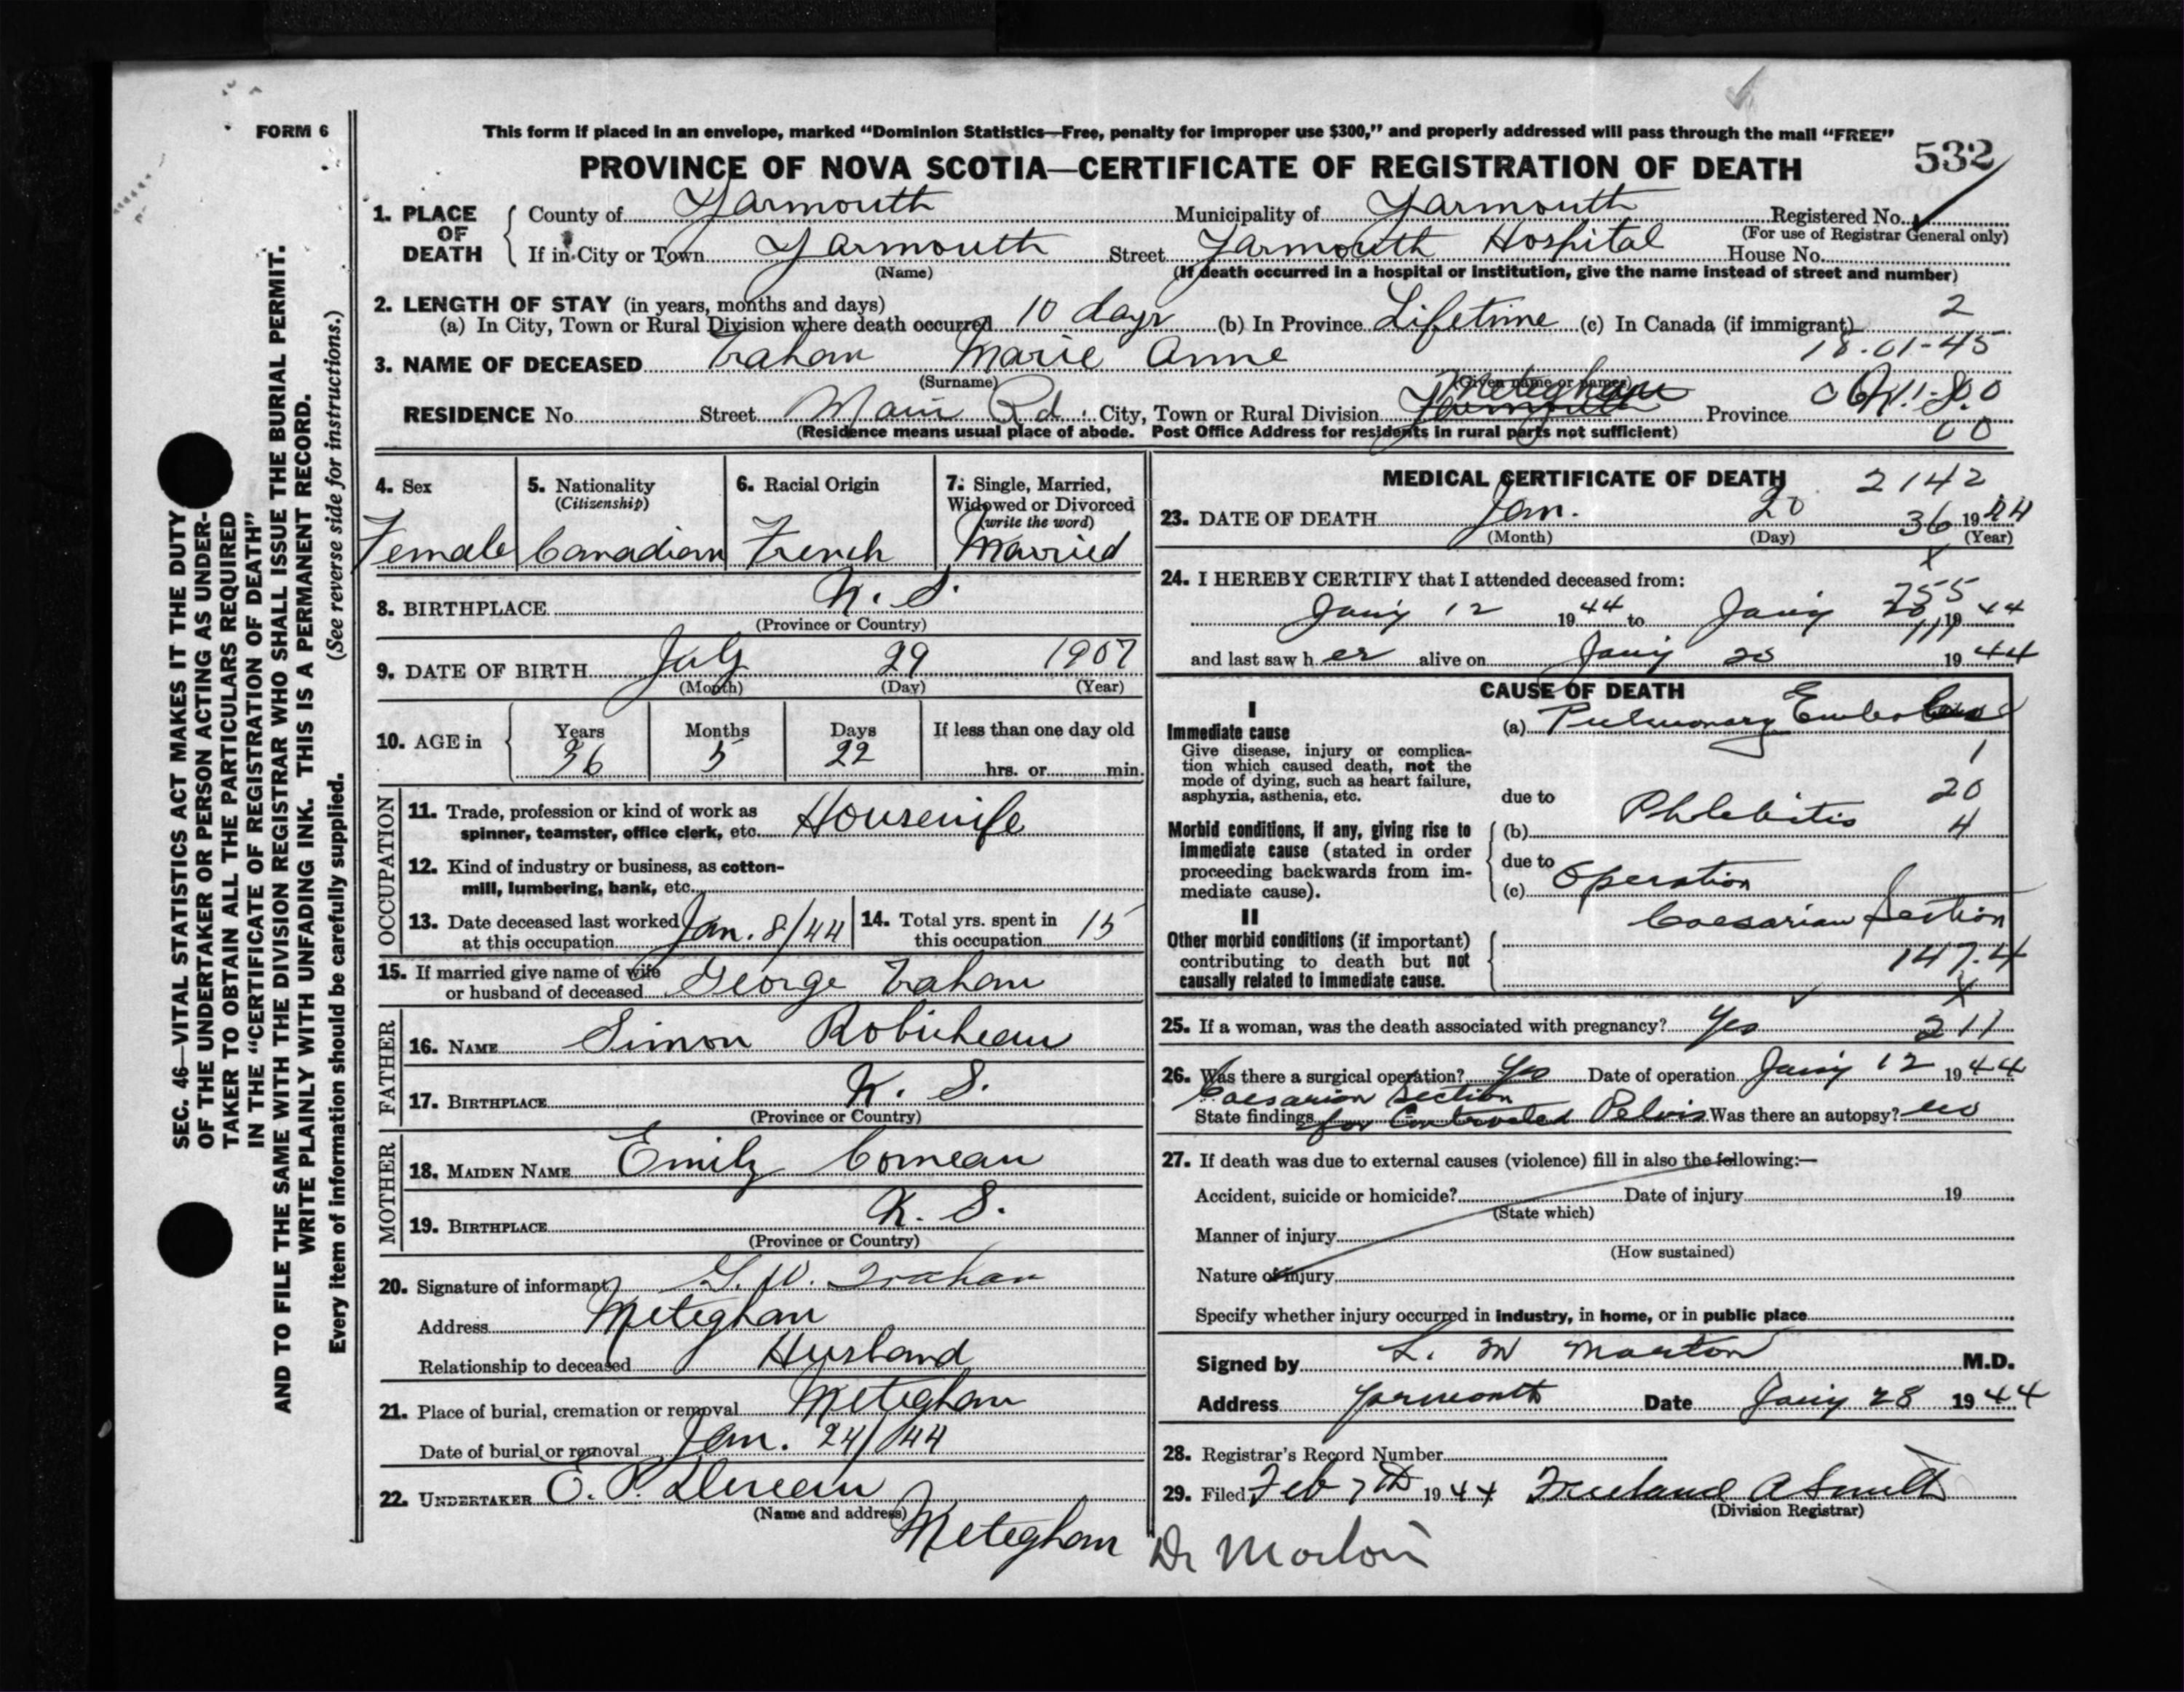 FORM 6
This form if placed in an envelope, marked "Dominion Statistics—Free, penalty for improper use $300," and properly addressed will pass through the mail "FREE"
PROVINCE OF NOVA SCOTIA—CERTIFICATE OF REGISTRATION OF DEATH
532
1. PLACE OF DEATH
County of Yarmouth Municipality of Yarmouth Registered No.
(For use of Registrar General only)
If in City or Town Yarmouth Street Yarmouth Hospital House No.
(Name) (If death occurred in a hospital or institution, give the name instead of street and number)
2. LENGTH OF STAY (in years, months and days) 2
(a) In City, Town or Rural Division where death occurred 10 days (b) In Province Lifetime (c) In Canada (if immigrant)
18-01-45
3. NAME OF DECEASED Trahan Marie Anne
(Surname) (Given name or names)
RESIDENCE No. Street Main Rd. City, Town or Rural Division Meteghan Province N.S.
(Residence means usual place of abode. Post Office Address for residents in rural parts not sufficient) 00
4. Sex
Female
5. Nationality
(Citizenship)
Canadian
6. Racial Origin
French
7. Single, Married,
Widowed or Divorced
(write the word)
Married
8. BIRTHPLACE N. S.
(Province or Country)
9. DATE OF BIRTH July 29 1907
(Month) (Day) (Year)
10. AGE in
Years Months Days If less than one day old
36 5 22 hrs. or min.
OCCUPATION
11. Trade, profession or kind of work as
spinner, teamster, office clerk, etc. Housewife
12. Kind of industry or business, as cotton-
mill, lumbering, bank, etc.
13. Date deceased last worked
at this occupation Jan. 8/44
14. Total yrs. spent in
this occupation 15
15. If married give name of wife
or husband of deceased George Trahan
FATHER
16. NAME Simon Robicheau
17. BIRTHPLACE N. S.
(Province or Country)
MOTHER
18. MAIDEN NAME Emily Comeau
19. BIRTHPLACE N. S.
(Province or Country)
20. Signature of informant G. W. Trahan
Address Meteghan
Relationship to deceased Husband
21. Place of burial, cremation or removal Meteghan
Date of burial or removal Jan. 24/44
22. UNDERTAKER E. P.
(Name and address)
Meteghan
MEDICAL CERTIFICATE OF DEATH 2142
23. DATE OF DEATH Jan. 20 36 1944
(Month) (Day) (Year)
x
24. I HEREBY CERTIFY that I attended deceased from:
755
Jany 12 1944 to Jany 20 1944
111
and last saw her alive on Jany 20 1944
CAUSE OF DEATH
I
Immediate cause
Give disease, injury or complica-
tion which caused death, not the
mode of dying, such as heart failure,
asphyxia, asthenia, etc.
(a) Pulmonary Embolus
1
20
4
due to
Morbid conditions, if any, giving rise to
immediate cause (stated in order
proceeding backwards from im-
mediate cause).
(b) Phlebitis
due to
(c) Operation
Caesarian Section
II
Other morbid conditions (if important)
contributing to death but not
causally related to immediate cause.
147.4
x
25. If a woman, was the death associated with pregnancy? Yes 211
26. Was there a surgical operation? Yes Date of operation Jany 12 1944
Caesarian Section
State findings for Contracted Pelvis Was there an autopsy? no
27. If death was due to external causes (violence) fill in also the following:—
Accident, suicide or homicide? Date of injury 19
(State which)
Manner of injury
(How sustained)
Nature of injury
Specify whether injury occurred in industry, in home, or in public place
Signed by L. M Morton M.D.
Address Yarmouth Date Jany 28 1944
28. Registrar's Record Number
29. Filed Feb 7th 1944 Freeland A Smith
(Division Registrar)
Dr Morton
SEC. 46—VITAL STATISTICS ACT MAKES IT THE DUTY
OF THE UNDERTAKER OR PERSON ACTING AS UNDER-
TAKER TO OBTAIN ALL THE PARTICULARS REQUIRED
IN THE "CERTIFICATE OF REGISTRATION OF DEATH"
AND TO FILE THE SAME WITH THE DIVISION REGISTRAR WHO SHALL ISSUE THE BURIAL PERMIT.
WRITE PLAINLY WITH UNFADING INK. THIS IS A PERMANENT RECORD.
Every item of information should be carefully supplied. (See reverse side for instructions.)